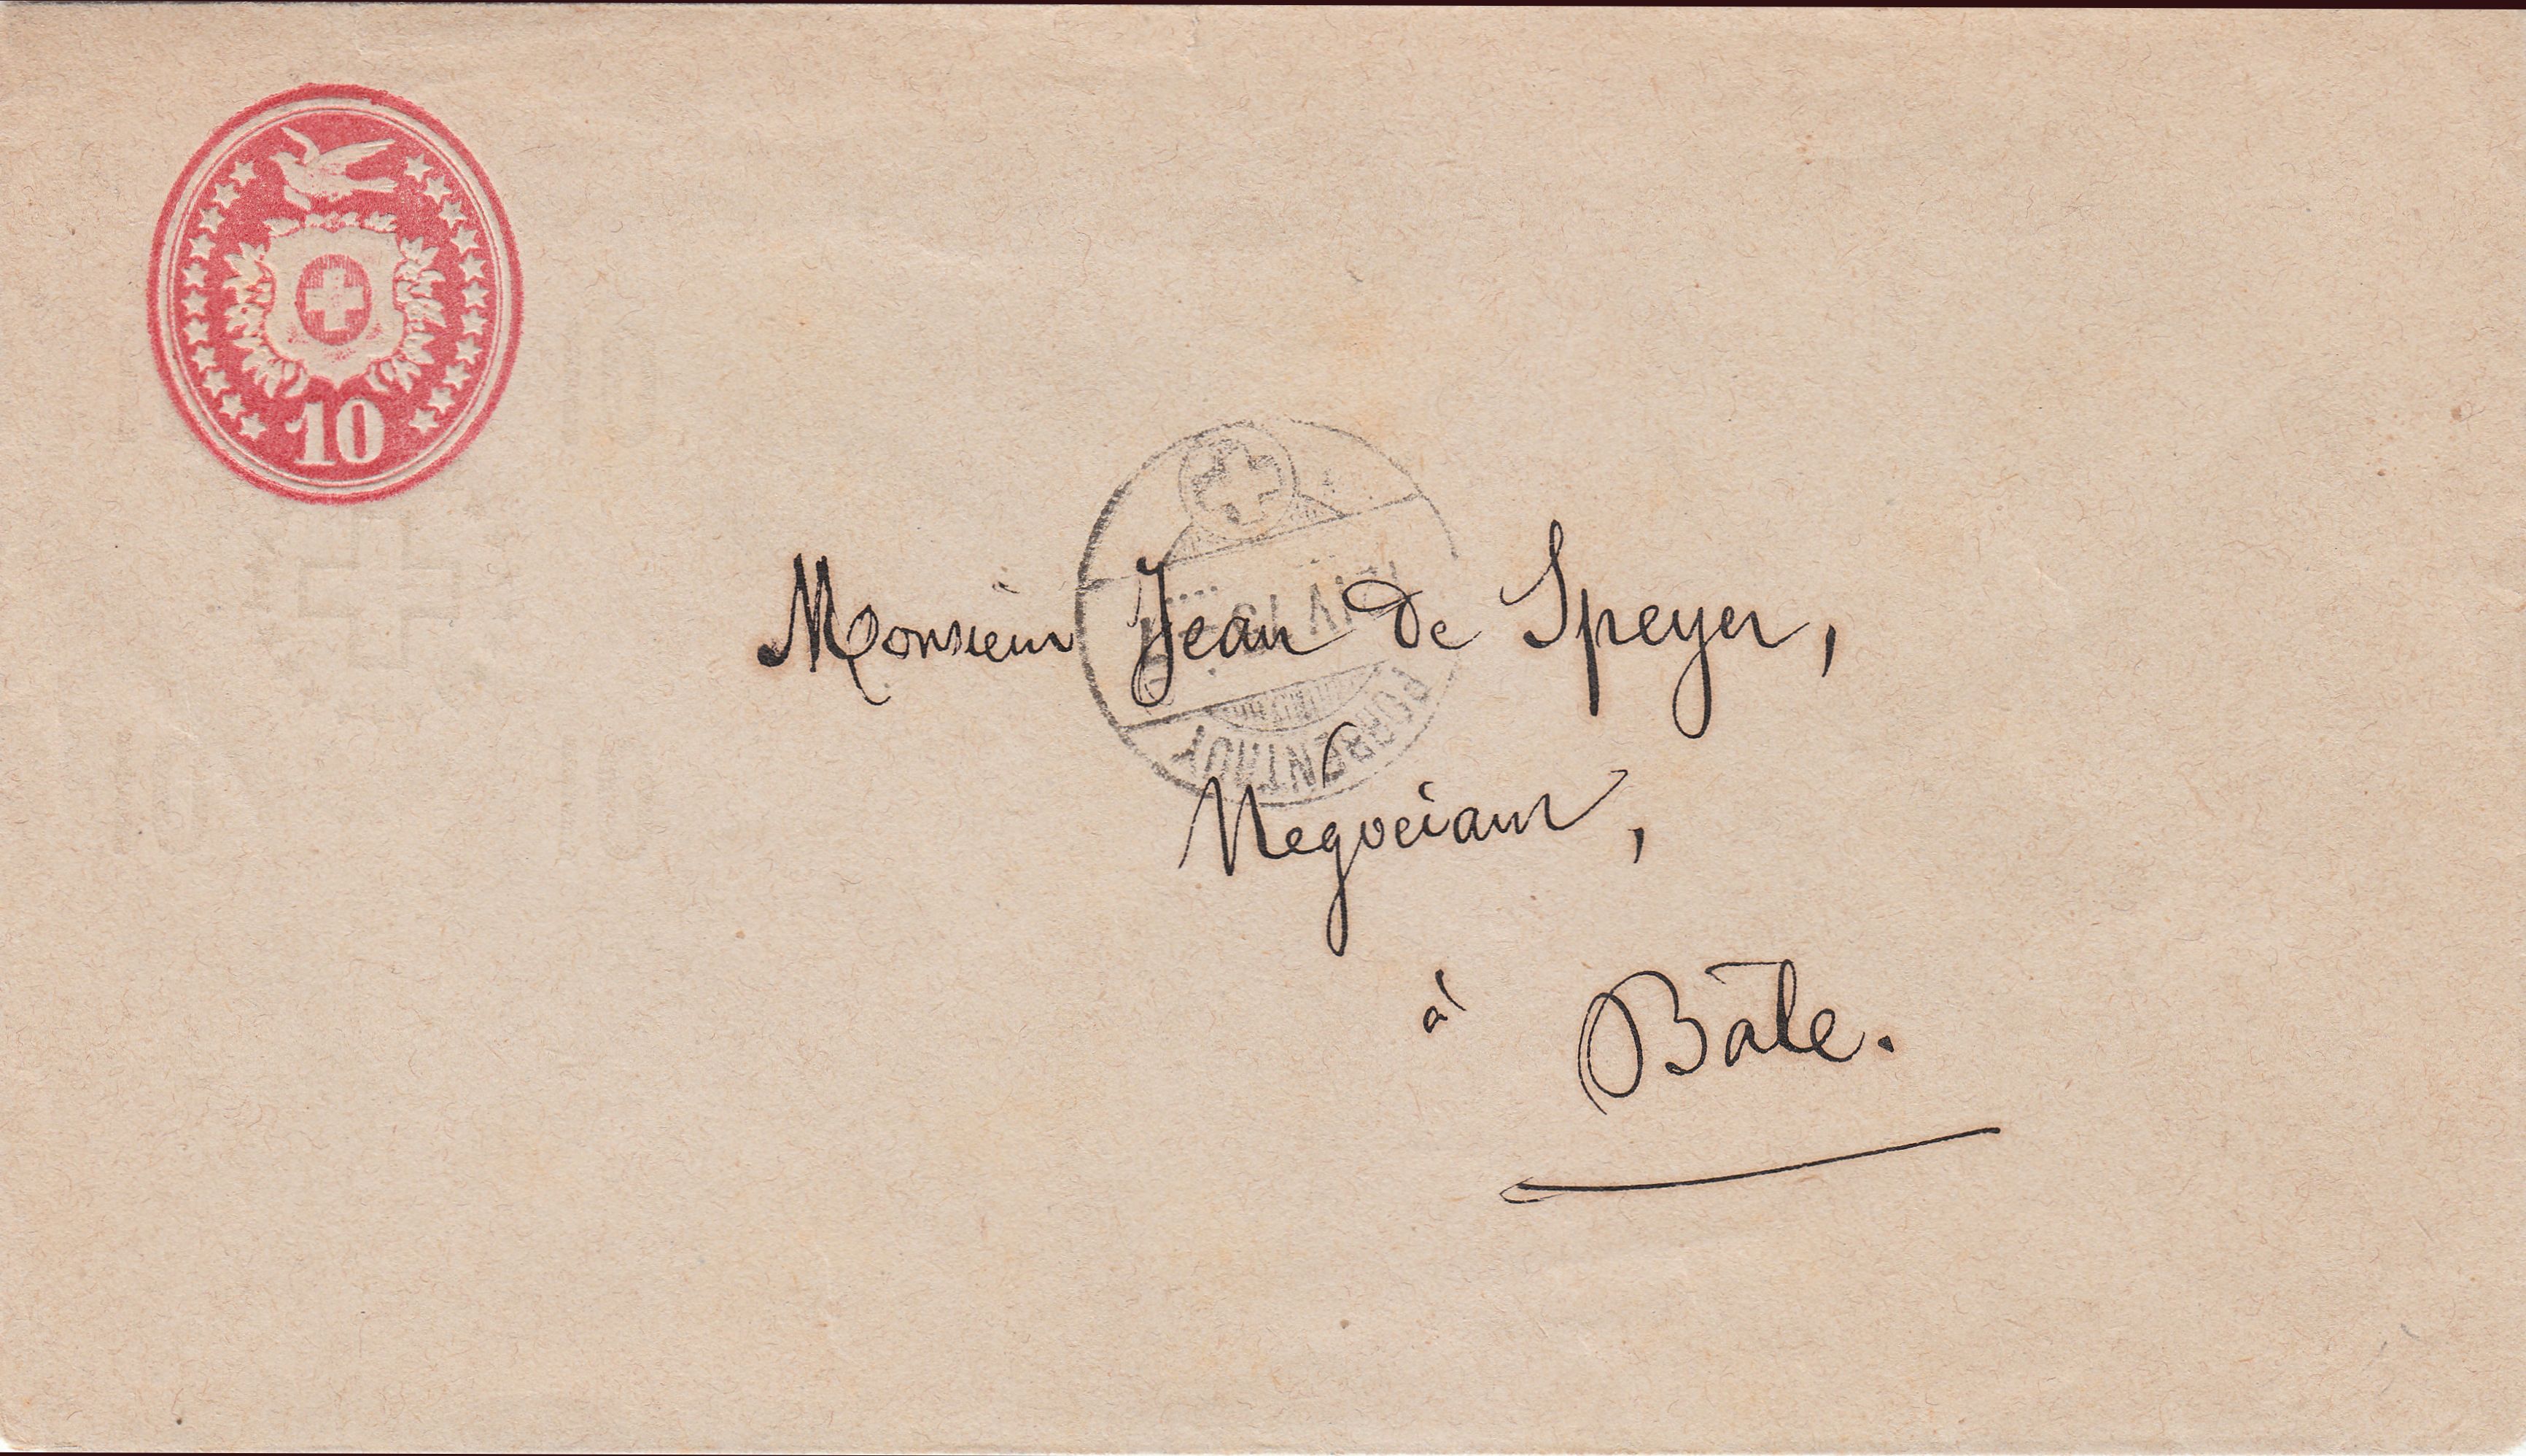 10
Monsieur Jean de Speyer,
Negociant,
à Bâle.
PORRENTRUY